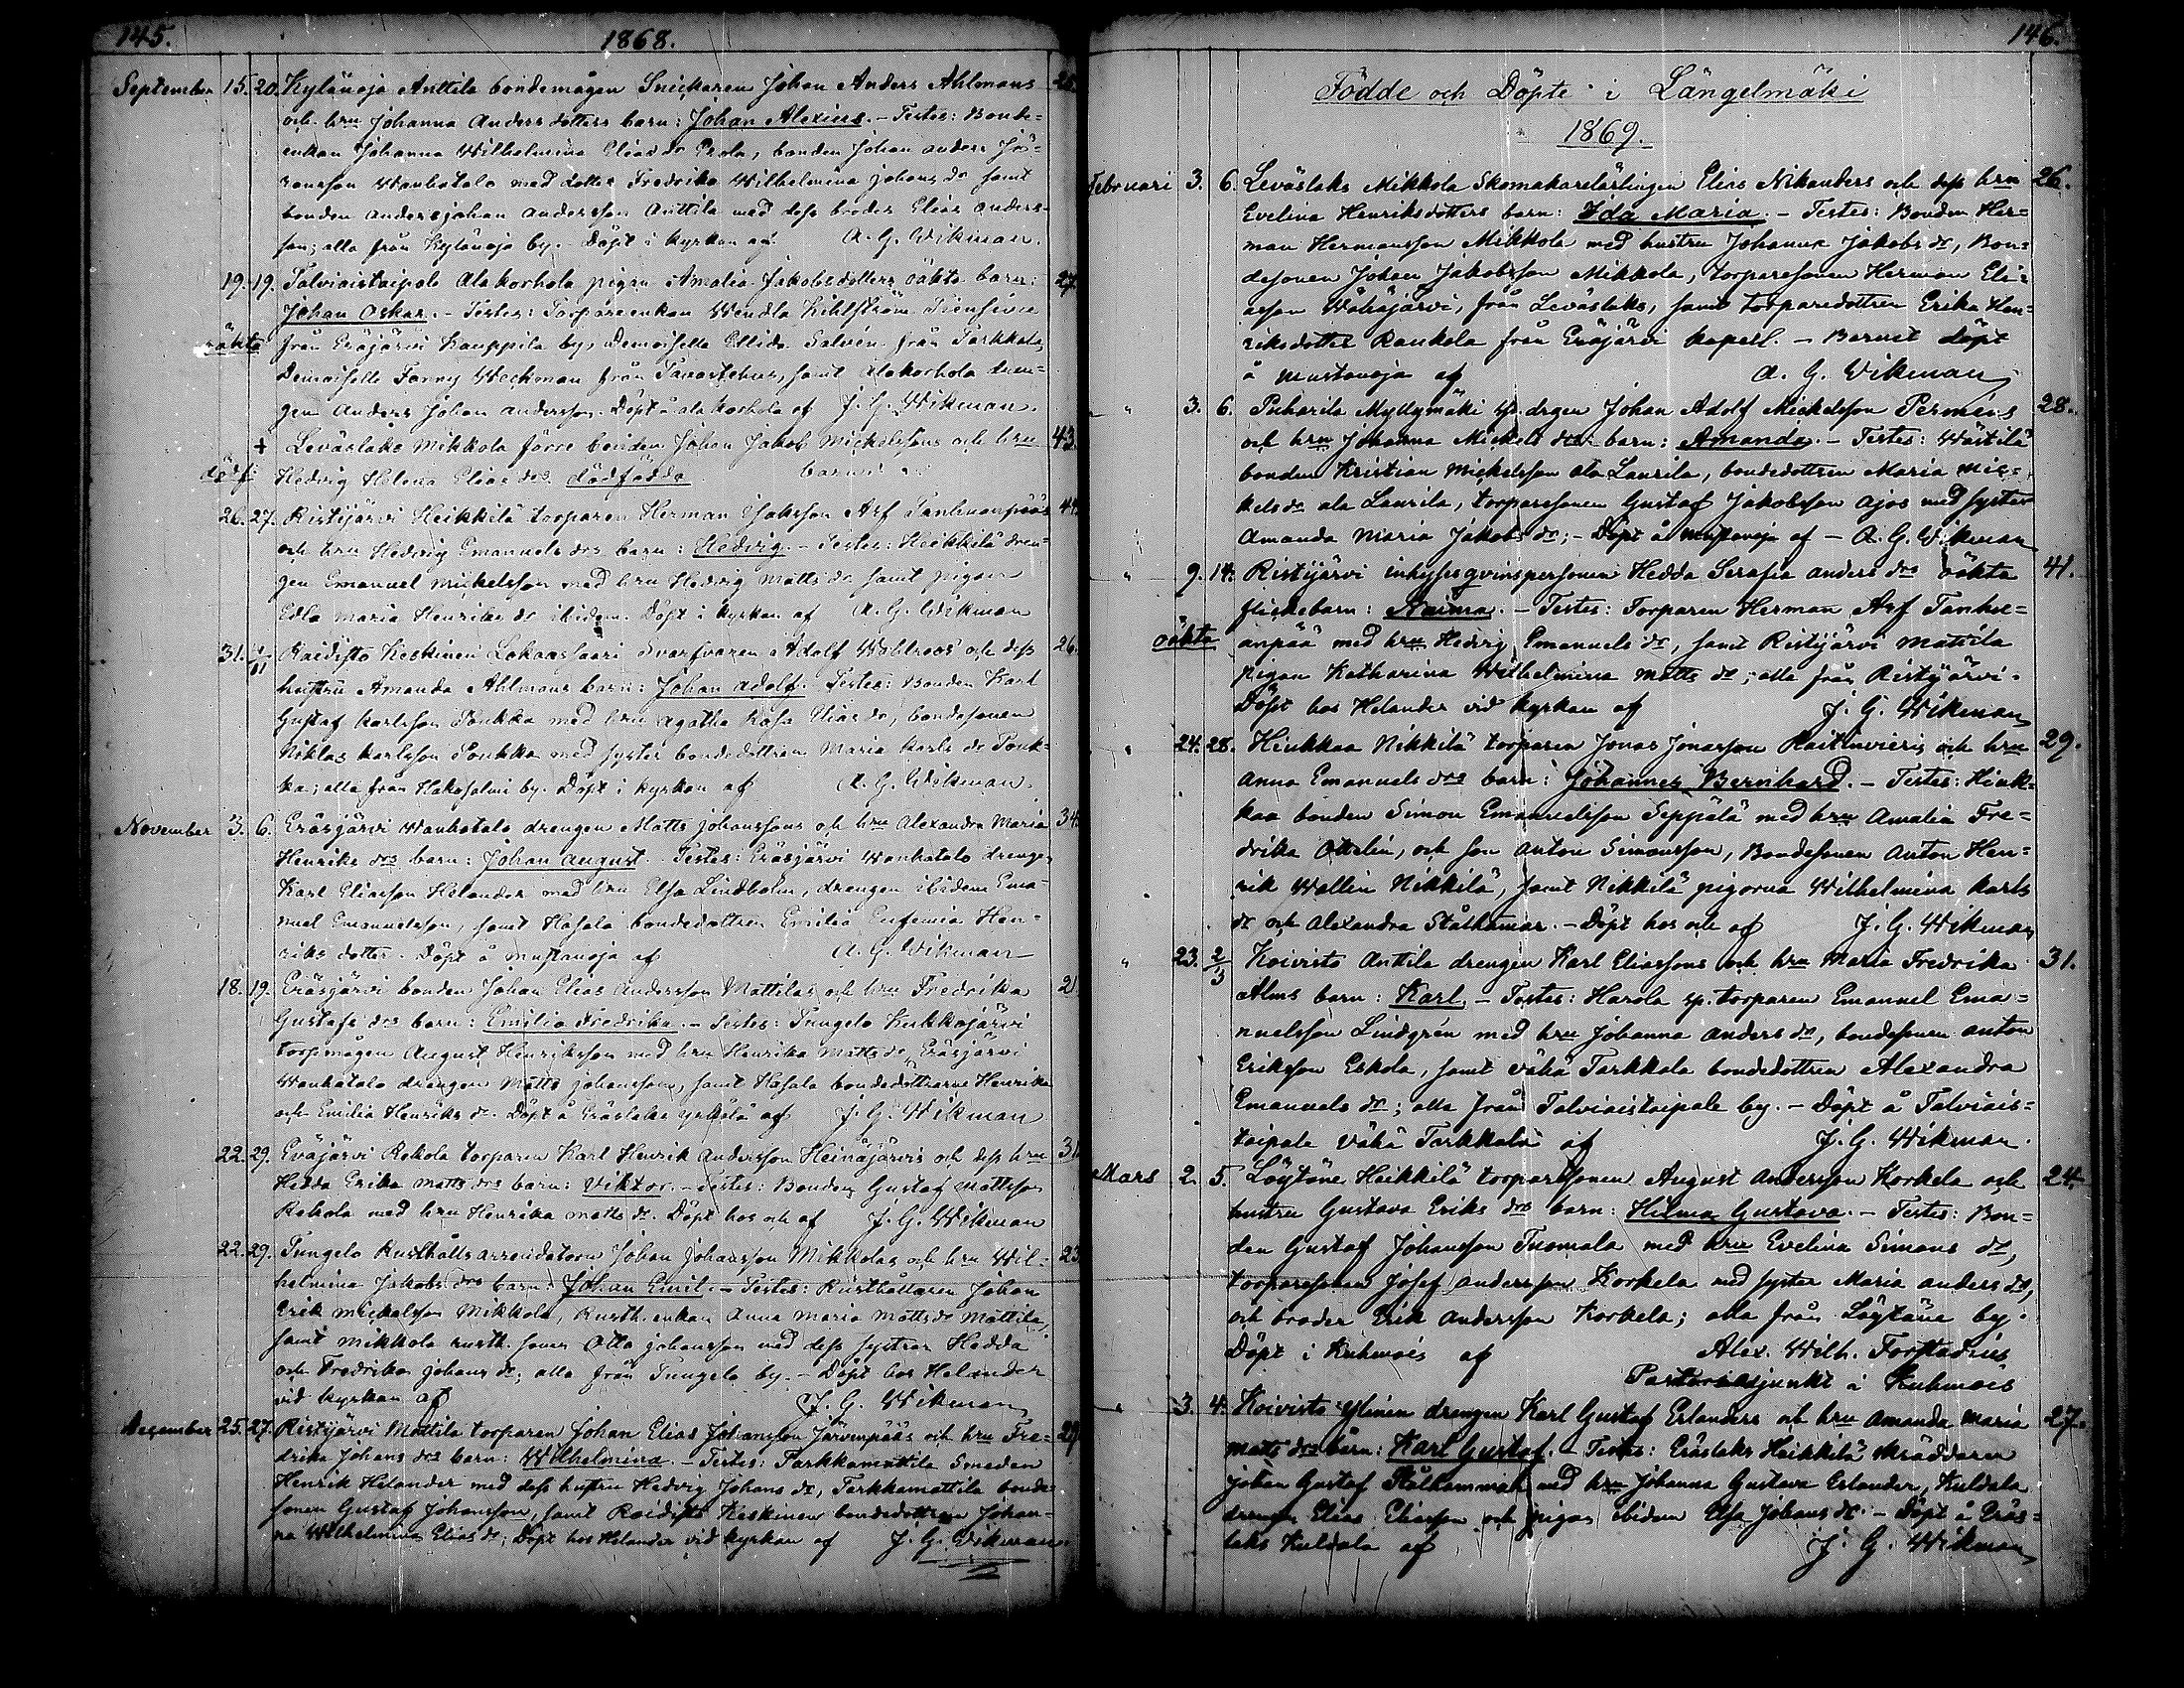 145.
1868.
September 15. 20. Kylänoja Anttila bondemågen Snickaren Johan Anders Ahlmans
och hru Johanna Anders dotters barn: Johan Alexius. - Testes: Bonde-
enkan Johanna Wilhelmina Elias dr bonden Johan Anders
Wanhatalo med dotter Fredrika Wilhelmina Johans dr samt
bonden Anders Johan Andersson Anttila med dess broder Elias Anders-
son; alla från Kylänoja by. - Döpt i kyrkan af A. G. Wikman.
19. 19. Talviaistaipale Alakorhola pigan Amalia Jakobsdotters oäkta barn: 27.
Johan Oskar. - Testes: Torpareenkan Wendla Kihlström
oäkta från Eräjärvi Kauppila by, Demoiselle Ellida Salvén från Tarkkala,
Demoiselle Fanny Weckman från Tavastehus, samt Alakorhola dren-
gen Anders Johan Andersson. Döpt å Alakorhola af J. G. Wikman.
+ Leväslaks Mikkola förre bonden Johan Jakob Mickelssons och hru 43.
dödf: Hedvig Helena Elias drs dödfödda barn
26. 27. Ristijärvi Heikkilä torparen Herman Isaksson Arf Tanhuanpääs 44.
och hru Hedvig Emanuels drs barn: Hedvig. - Testes: Heikkilä dren-
gen Emanuel Mickelsson med hru Hedvig Matts dr samt pigan
Edla Maria Henriks dr ibidem. Döpt i kyrkan af A. G. Wikman
31. 1/11 Raidisto Keskinen Lokaassaari Svarfvaren Adolf Wahlroos och dess 26.
hustru Amanda Ahlmans barn: Johan Adolf. - Testes: Bonden Karl
Gustaf Karlsson Poukka med hru Agatha Kajsa Elias dr, bondesonen
Niklas Karlsson Poukka med syster bondedottren Maria Karls dr Pouk-
ka; alla från Hakosalmi by. Döpt i kyrkan af A. G. Wikman.
November 3. 6. Eräsjärvi Wanhatalo drengen Matts Johanssons och hru Alexandra Maria 34.
Henriks drs barn: Johan August. Testes: Eräsjärvi Wanhatalo drengen
Karl Eliasson Helander med hru Elsa Lindholm, drengen ibidem Ema-
nuel Emanuelsson, samt Hasala bondedottren Emilia Eufemia Hen-
riks dotter. Döpt å Mustanoja af A. G. Wikman
18. 19. Eräsjärvi bonden Johan Elias Andersson Mattilas och hru Fredrika 21
Gustafs drs barn: Emilia Fredrika. - Testes: Pungelo Kukkojärvi
torpmågen August Henriksson med hru Henrika Matts dr, Eräsjärvi
Wanhatalo drengen Matts Johansson, samt Hasala bondedöttrarne Henrika
och Emilia Henriks dr. Döpt å Eräslaks Yrkölä af J. G. Wikman
22. 29. Eräjärvi Rekola torparen Karl Henrik Andersson Heinäjärvis och dess hru 31
Hedda Erika Matts drs barn: Viktor. - Testes: Bonden Gustaf Mattsson
Rekola med hru Henrika Matts dr. Döpt hos och af J. G. Wikman
22. 29. Pungelo Rusthållsarrendatorn Johan Johansson Mikkolas och hru Wil- 23
helmina Jakobs drs barn: Johan Emil. - Testes: Rusthållaren Johan
Erik Mickelsson Mikkola, Rusth. enkan Anna Maria Matts dr Mattila,
samt Mikkola rusth. sonen Otto Johansson med dess systrar Hedda
och Fredrika Johans dr; alla från Pungelo by. - Döpt hos Helander
vid kyrkan af J. G. Wikman
December 25. 27. Ristijärvi Mattila torparen Johan Elias Johansson Järvenpääs och hru Fre- 29
drika Johans drs barn: Wilhelmina. - Testes: Parkkamattila Smeden
Henrik Helander med dess hustru Hedvig Johans dr, Tarkkamattila bonde
sonen Gustaf Johansson, samt Raidisto Keskinen bondedottren Johan-
na Wilhelmina Elias dr; Döpt hos Helander vid kyrkan af J. G. Wikman.
146.
Födde och Döpte i Längelmäki
1869.
Februari 3. 6. Leväslaks Mikkola Skomakarelärlingen Elias Nikanders och dess hru 26.
Evelina Henriksdotters barn: Ida Maria. - Testes: Bonden Her-
man Hermansson Mikkola med hustru Johanna Jakobs dr, Bon-
desonen Johan Jakobsson Mikkola, torparesonen Herman Eli-
asson Wähäjärvi, från Leväslaks, samt torparedottren Erika Hen-
riksdotter Rankola från Eräjärvi kapell. - Barnet döpt
å Mustanoja af A. G. Wikman
" 3. 6. Puharila Myllymäki sp. drgen Johan Adolf Mickelsson Permans 28.
och hru Johanna Mickels drs barn: Amanda. - Testes: Wästilä
bonden Kristian Mickelsson Ala Laurila, bondedottren Maria Mic-
kels dr Ala Laurila, torparesonen Gustaf Jakobsson Ajos med syster
Amanda Maria Jakobs dr; - Döpt å Mustanoja af - A. G. Wikman
" 9. 14. Ristijärvi inhyses qvinspersonen Hedda Serafia Anders drs oäkta 41.
flickebarn: Naima. - Testes: Torparen Herman Arf Tanhu-
oäkta anpää med hru Hedvig Emanuels dr, samt Ristijärvi Mattila
pigan Katharina Wilhelmina Matts dr; alla från Ristijärvi.
Döpt hos Helander vid kyrkan af J. G. Wikman
" 24. 28. Hiukkaa Nikkilä torparen Jonas Jonasson Raitinvieris och hru 29.
Anna Emanuels drs barn: Johannes Bernhard. - Testes: Hiuk-
kaa bonden Simon Emanuelsson Seppälä med hru Amalia Fre-
drika Ottelin, och son Anton Simonsson, Bondesonen Anton Hen-
rik Wallin Nikkilä, samt Nikkilä pigorna Wilhelmina Karls
dr och Alexandra Stålhamar. - Döpt hos och af J. G. Wikman
" 23. 2/3 Koivisto Anttila drengen Karl Eliassons och hru Maria Fredrika 31.
Alms barn: Karl. - Testes: Harola sp. torparen Emanuel Ema-
nuelsson Lindgrén med hru Johanna Anders dr, bondesonen Anton
Eriksson Eskola, samt Vähä Tarkkala bondedottren Alexandra
Emanuels dr; alla från Talviaistaipale by. - Döpt å Talviais-
taipale Vähä Tarkkala af J. G. Wikman.
Mars 2. 5. Löytäne Heikkilä torparesonen August Andersson Korkela och 24.
hustru Gustava Eriks drs barn: Hilma Gustava. - Testes: Bon-
den Gustaf Johansson Tuomala med hru Evelina Simons dr,
torparesonen Josef Andersson Korkela med syster Maria Anders dr,
och broder Erik Andersson Korkela; alla från Löytäne by.
Döpt i Kuhmois af Alex. Wilh. Forstadius
Pastorsadjunkt i Kuhmois
" 3. 4. Koivisto Ylinen drengen Karl Gustaf Erlanders och hru Amanda Maria 27.
Matts drs barn: Karl Gustaf. - Testes: Eräslaks Heikkilä skräddaren
Johan Gustaf Stålhammar med hru Johanna Gustava Erlander, Kuldala
drengen Elias Eliasson och pigan ibidem Elsa Johans dr. - Döpt å Eräs-
laks Kuldala af J. G. Wikman